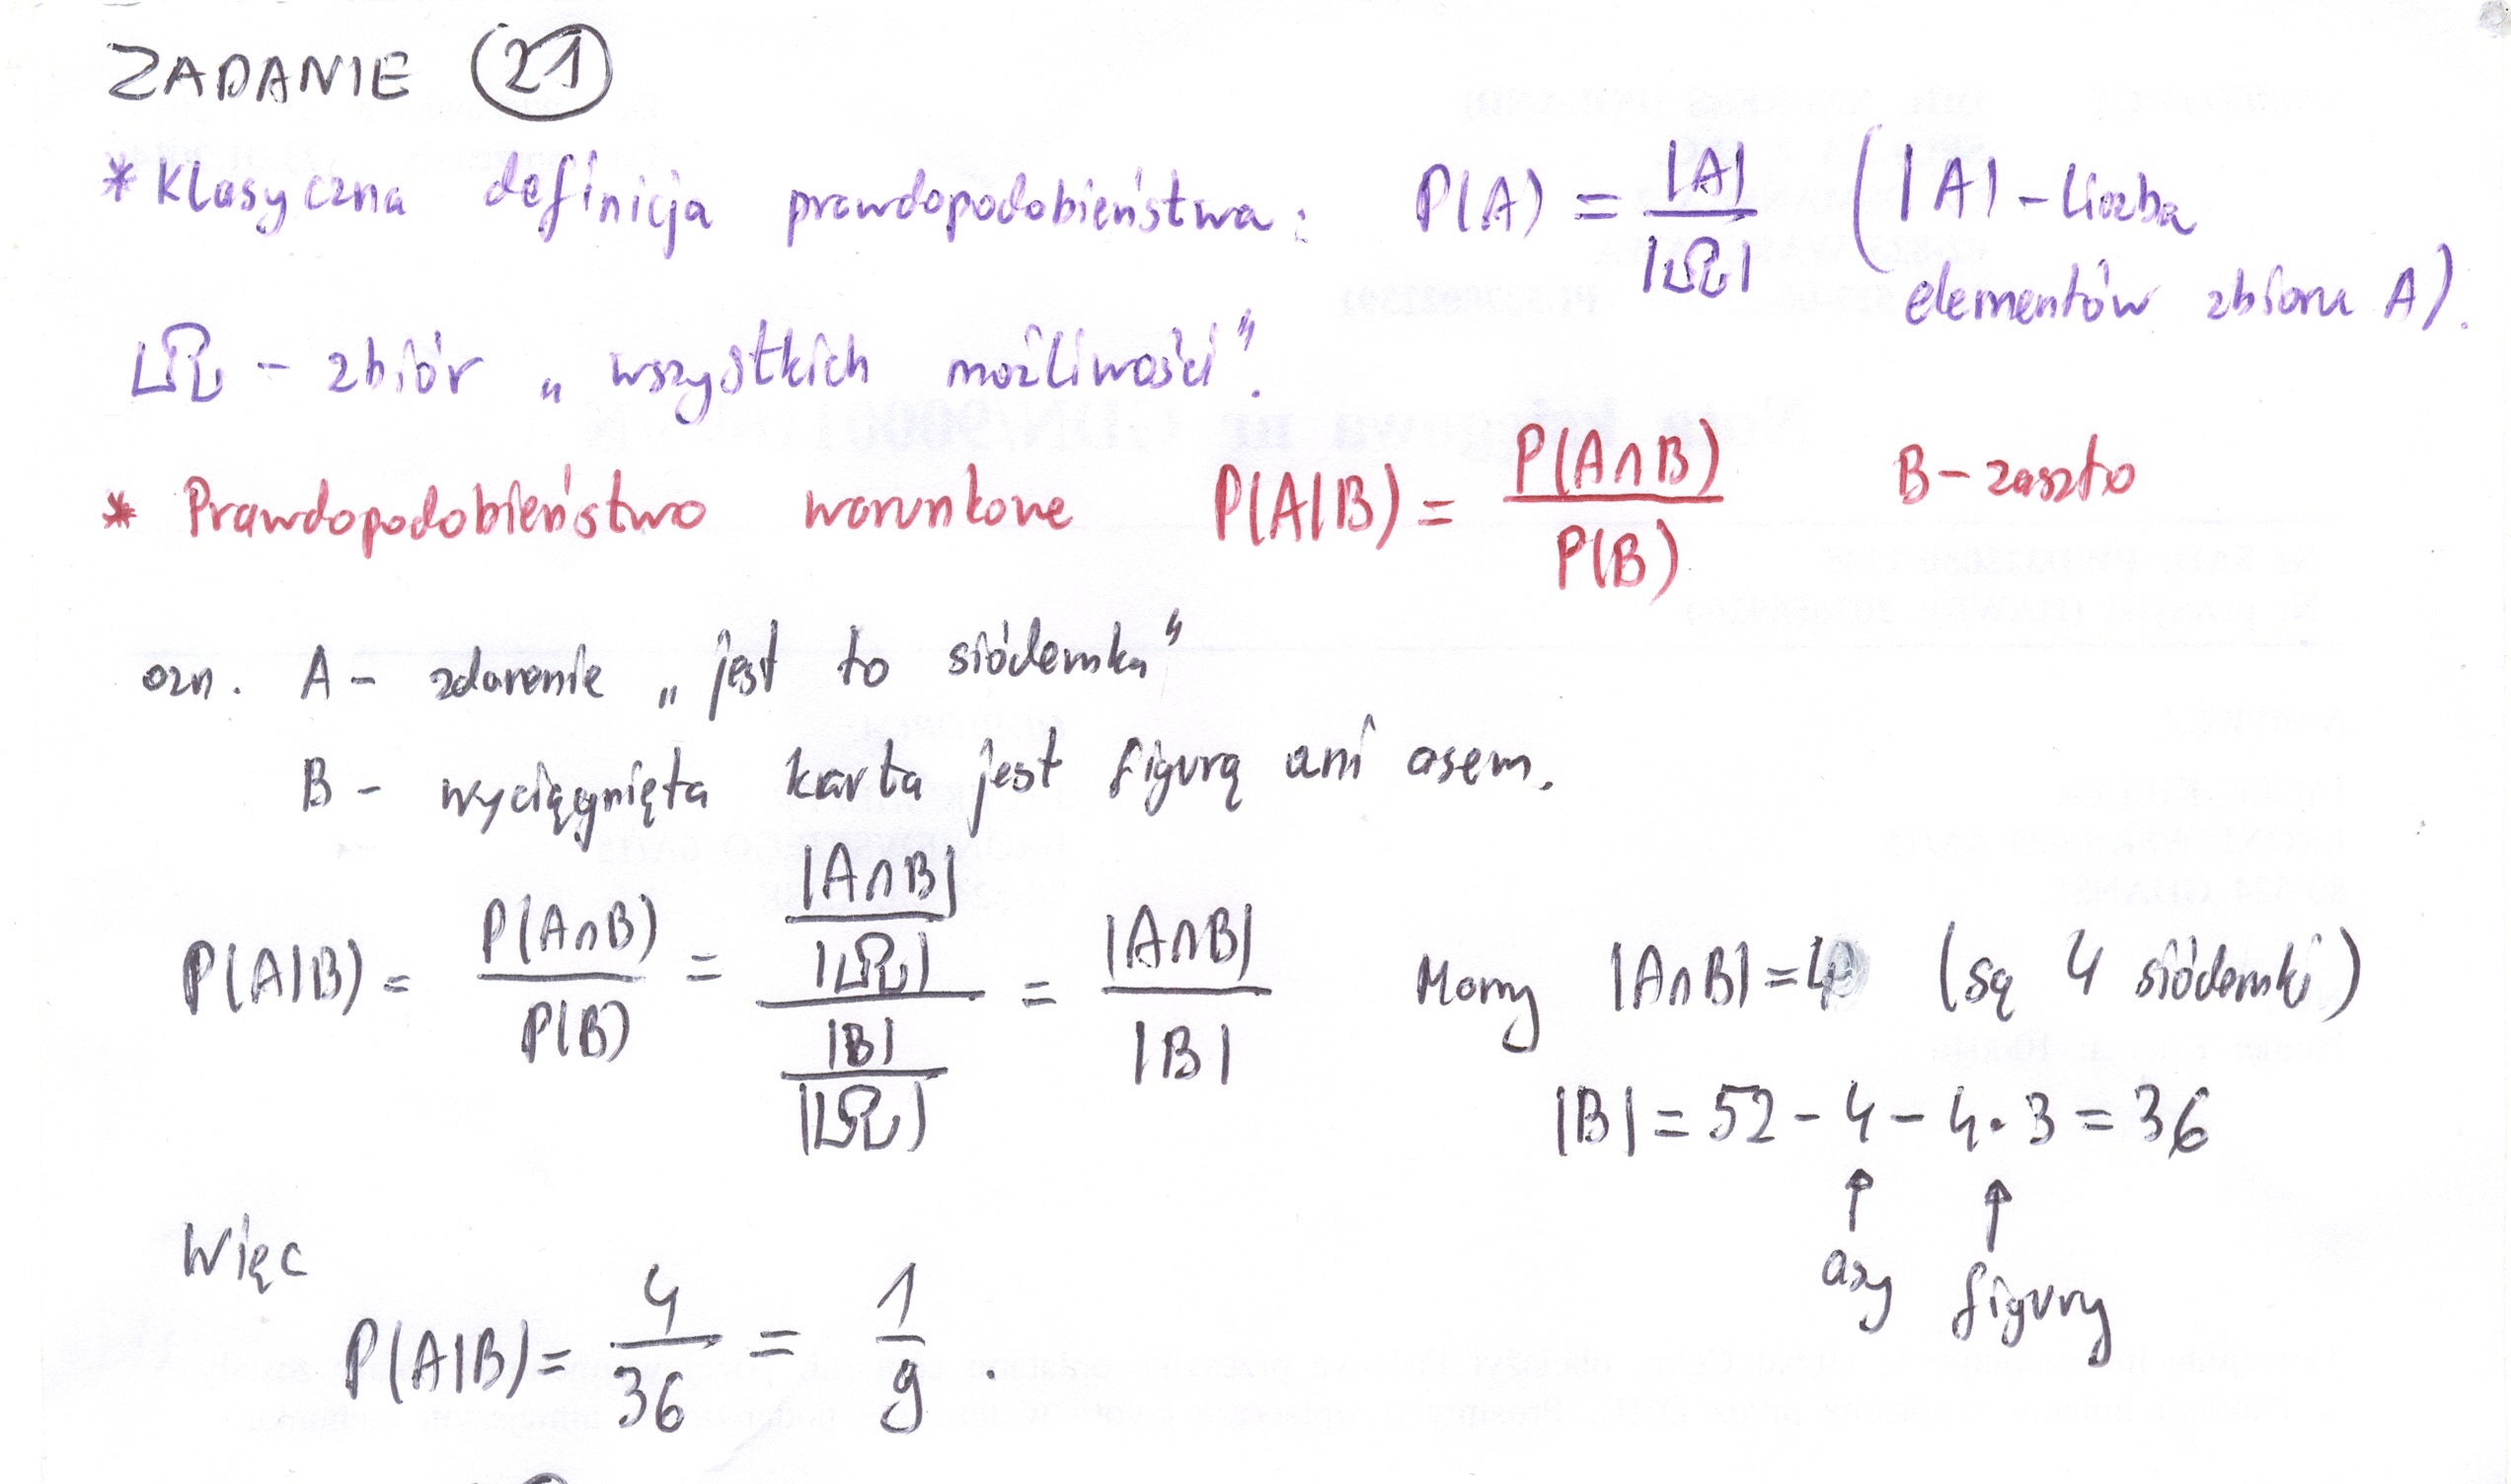 ZADANIE 21
* Klasyczna definicja prawdopodobieństwa: P(A) = |A| / |Ω| (|A| - liczba
elementów zbioru A).
Ω - zbiór „wszystkich możliwości".
* Prawdopodobieństwo warunkowe P(A|B) = P(A∩B) / P(B) B - zaszło
ozn. A - zdarzenie „jest to siódemka"
B - wyciągnięta karta jest figurą ani asem.
P(A|B) = P(A∩B) / P(B) = (|A∩B| / |Ω|) / (|B| / |Ω|) = |A∩B| / |B| Mamy |A∩B| = 4 (są 4 siódemki)
|B| = 52 - 4 - 4·3 = 36
↑ ↑
asy figury
Więc
P(A|B) = 4/36 = 1/9 .